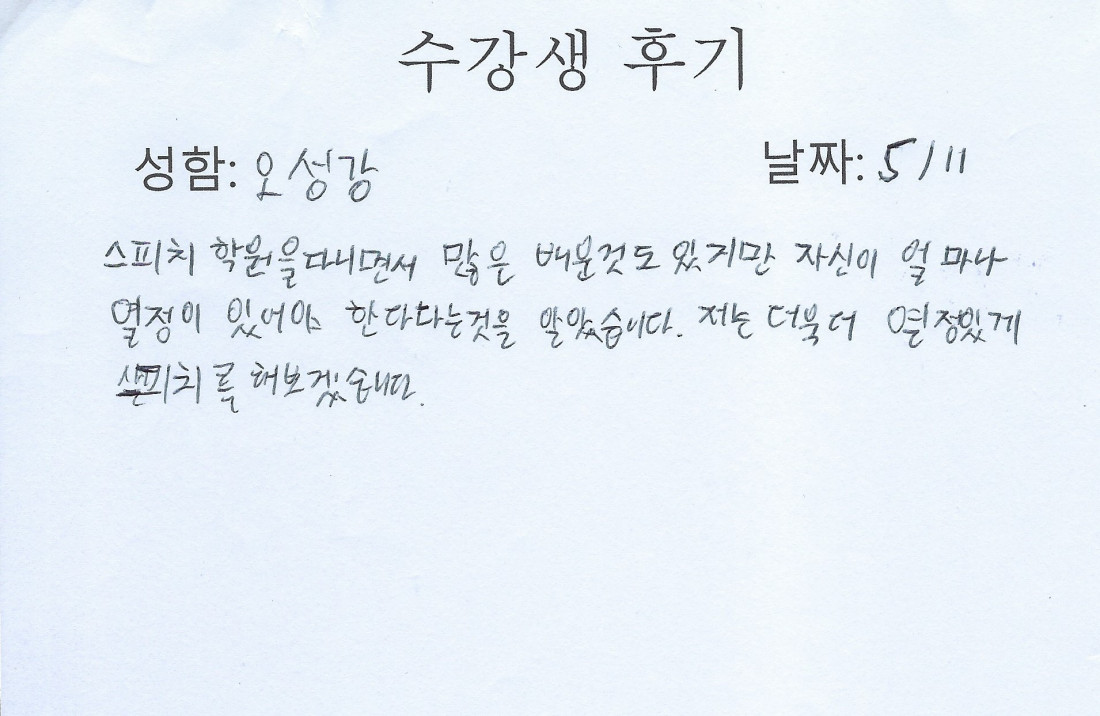 수강생 후기
성함: 오성강 날짜: 5/11
스피치 학원을다니면서 많은 배운것도 있지만 자신이 얼마나
열정이 있어야 한다다는것을 알았습니다. 저는 더욱더 열정있게
스피치를 해보겠습니다.